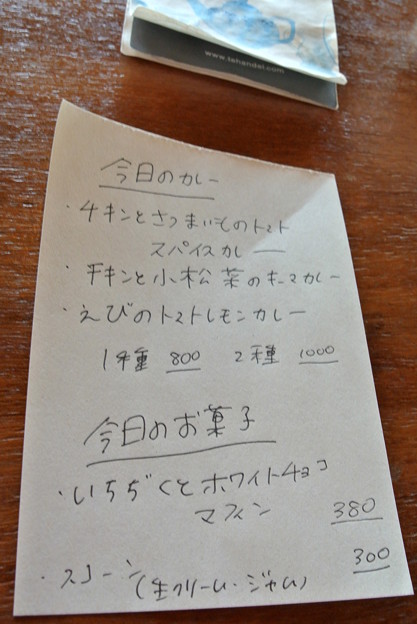 www.tehandel.com
今日のカレー
・チキンとさつまいものトマト
スパイスカレー
・チキンと小松菜のキーマカレー
・えびのトマトレモンカレー
1種 800 2種 1000
今日のお菓子
・いちぢくとホワイトチョコ
マフィン 380
・スコーン(生クリーム・ジャム) 300